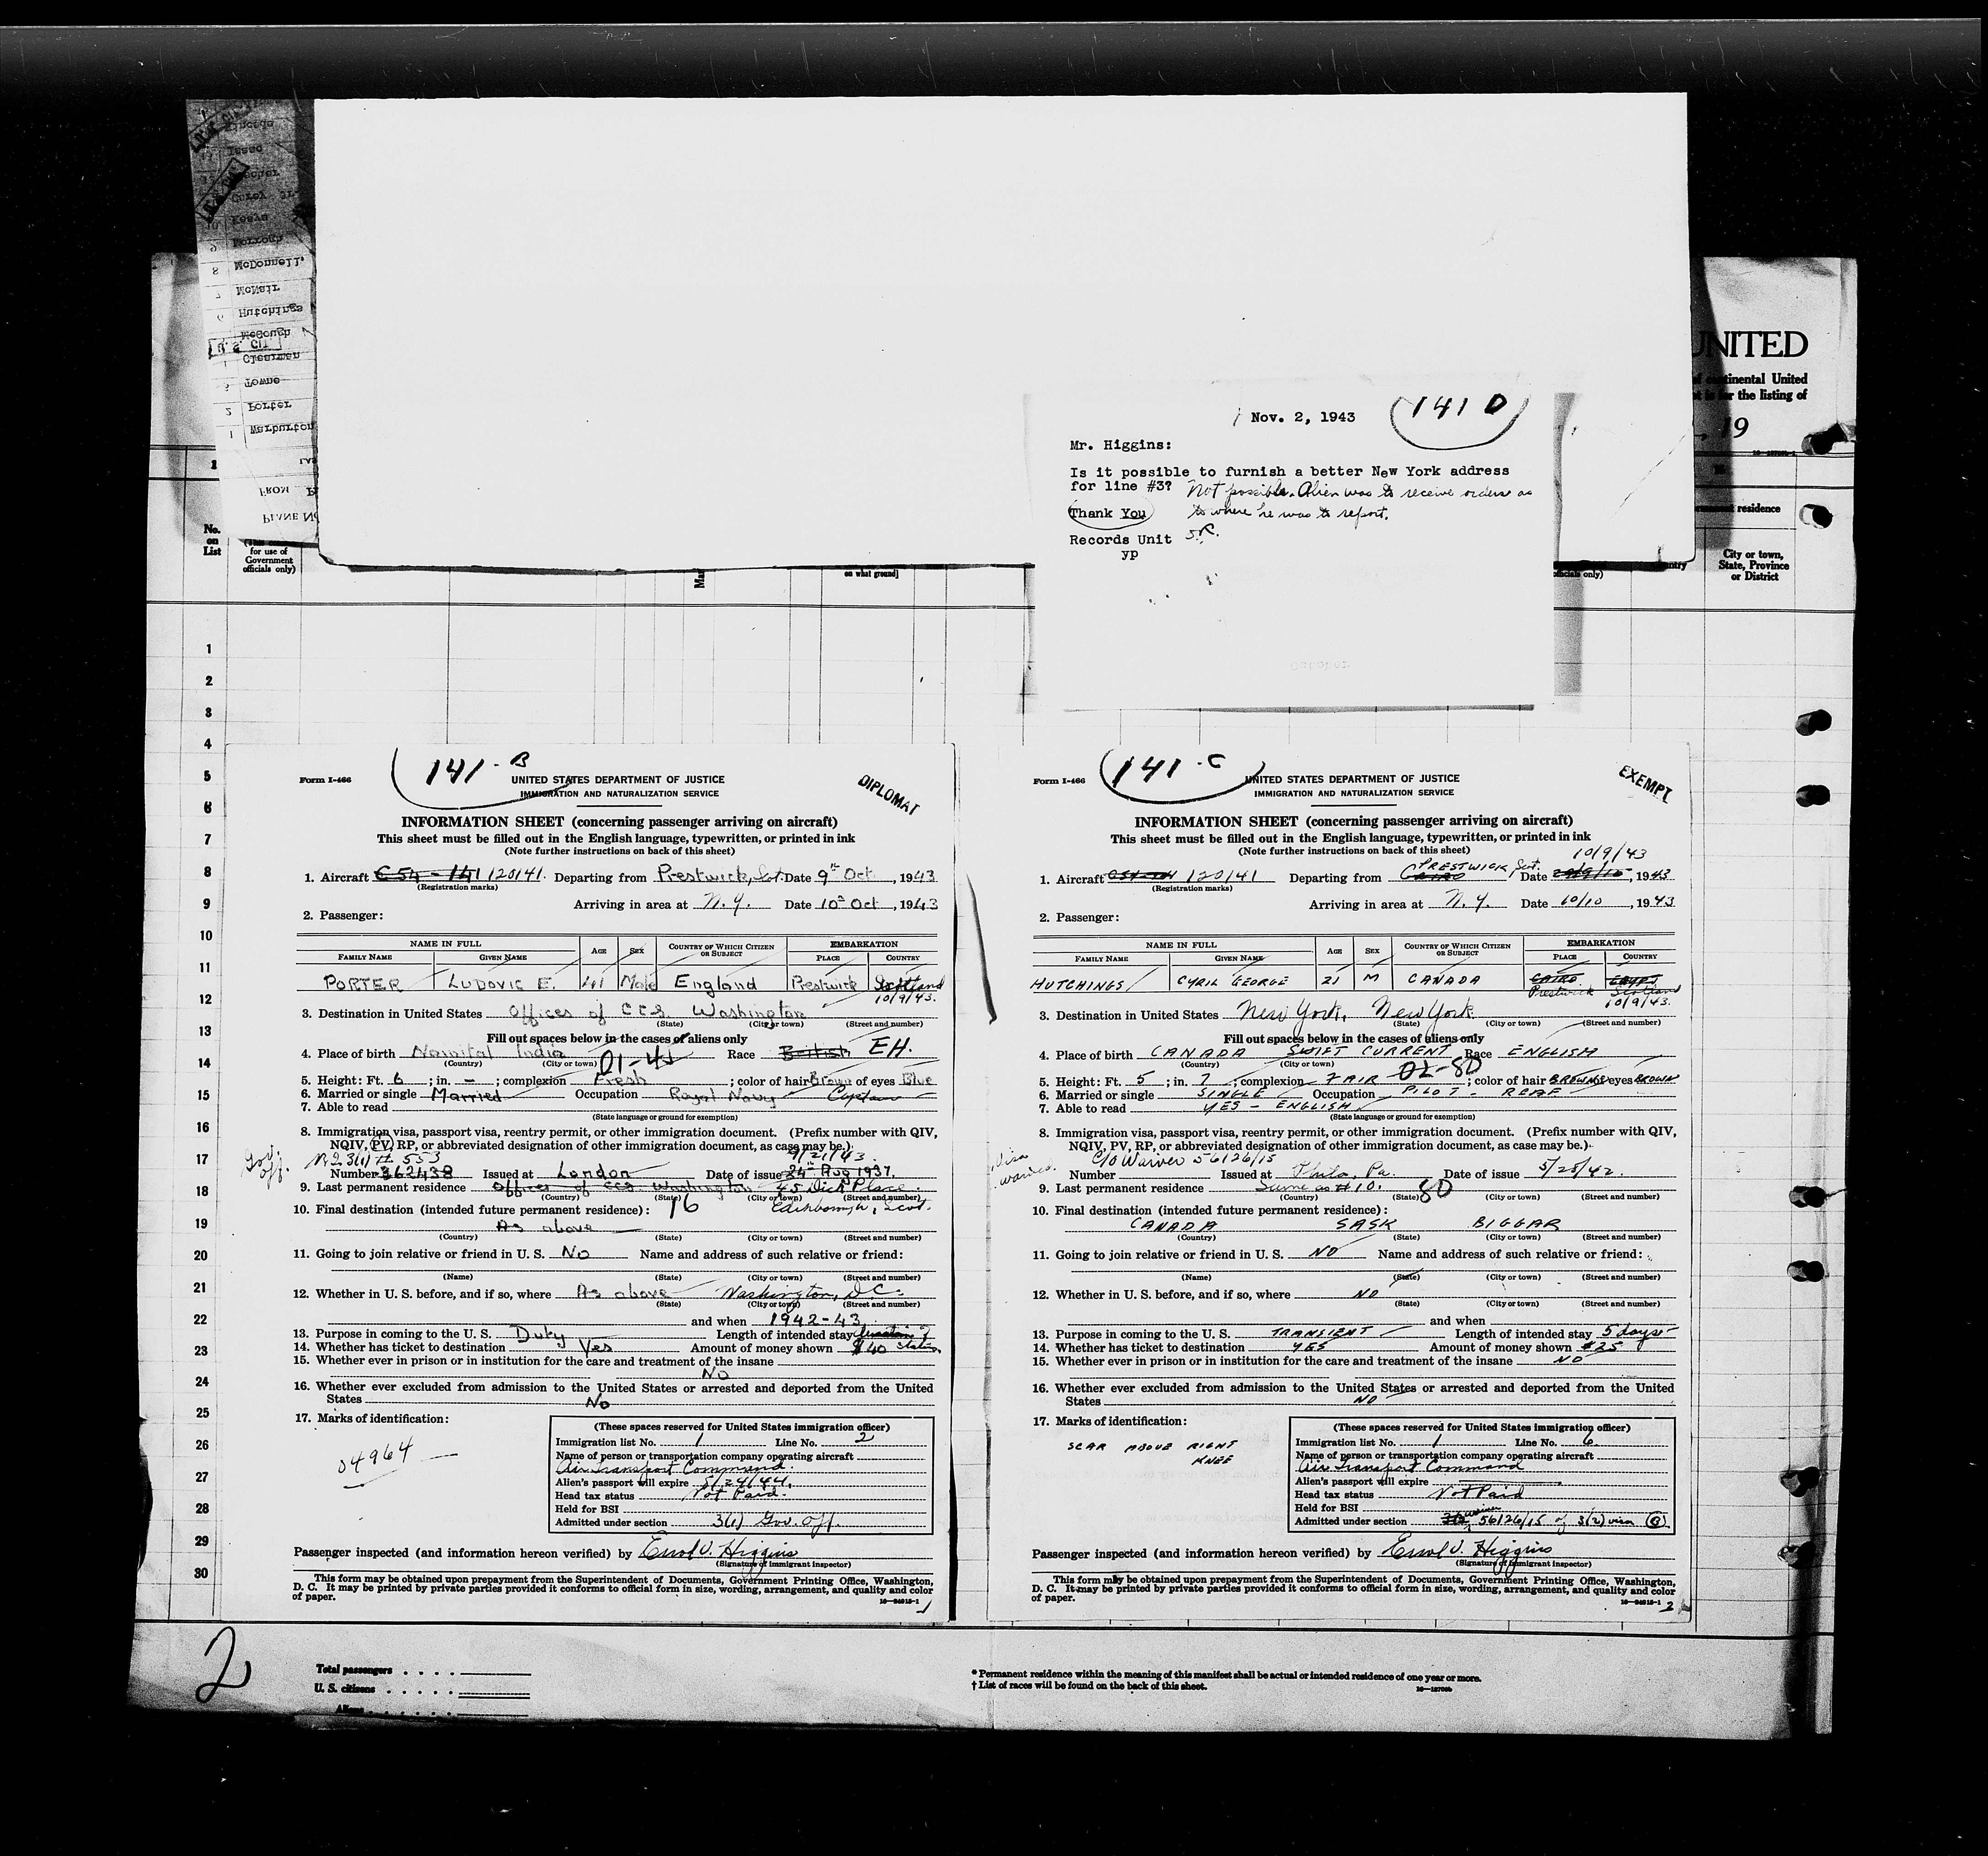 UNITED
continental United
for the listing of
19
McDonnell,
McNair
Hutchings
McGough
U.S. CIT.
Clearman
Towne
Porter
Warburton
FROM
PLANE NO
141 D
Nov. 2, 1943
Mr. Higgins:
Is it possible to furnish a better New York address
for line #3? Not possible. Alien was to receive orders as
Thank You to where he was to report.
Records Unit
yp
No. on List
for use of
Government
officials only)
on what ground]
residence
City or town,
State, Province
or District
1
2
3
4
5
6
7
8
9
10
11
12
13
14
15
16
17
18
19
20
21
22
23
24
25
26
27
28
29
30
Form I-466
141 - B
UNITED STATES DEPARTMENT OF JUSTICE
IMMIGRATION AND NATURALIZATION SERVICE
DIPLOMAT
INFORMATION SHEET (concerning passenger arriving on aircraft)
This sheet must be filled out in the English language, typewritten, or printed in ink
(Note further instructions on back of this sheet)
1. Aircraft C 54 - 141 120141. Departing from Prestwick, Scot. Date 9th Oct, 1943
(Registration marks)
Arriving in area at N.Y. Date 10th Oct, 1943
2. Passenger:
NAME IN FULL AGE SEX COUNTRY OF WHICH CITIZEN OR SUBJECT EMBARKATION
FAMILY NAME GIVEN NAME PLACE COUNTRY
PORTER LUDOVIC E. 41 Male England Prestwick Scotland
10/9/43.
3. Destination in United States Offices of CCS. Washington
(State) (City or town) (Street and number)
Fill out spaces below in the cases of aliens only
4. Place of birth Nainital India Race British EH.
(Country) (City or town) 01-41
5. Height: Ft. 6; in. -; complexion Fresh; color of hair Brown of eyes Blue
6. Married or single Married Occupation Royal Navy Captain
7. Able to read
(State language or ground for exemption)
8. Immigration visa, passport visa, reentry permit, or other immigration document. (Prefix number with QIV,
NQIV, PV, RP, or abbreviated designation of other immigration document, as case may be.)
Gov. off.
553 9/21/43.
Number 362438 Issued at London Date of issue 24th Aug 1937.
9. Last permanent residence Offices of CCS. Washington 45 Dick Place.
(Country) (State) (City or town) (Street and number)
10. Final destination (intended future permanent residence): 76 Edinborough, Scot.
As above
(Country) (State) (City or town) (Street and number)
11. Going to join relative or friend in U. S. No Name and address of such relative or friend:
(Name) (State) (City or town) (Street and number)
12. Whether in U. S. before, and if so, where As above Washington, D.C.
(State) (City or town) (Street and number)
and when 1942-43
13. Purpose in coming to the U. S. Duty Length of intended stay
14. Whether has ticket to destination Yes Amount of money shown $40
15. Whether ever in prison or in institution for the care and treatment of the insane
No
16. Whether ever excluded from admission to the United States or arrested and deported from the United
States No
17. Marks of identification:
04964
(These spaces reserved for United States immigration officer)
Immigration list No. 1 Line No. 2
Name of person or transportation company operating aircraft
Air Transport Command.
Alien's passport will expire 5/24/44.
Head tax status Not Paid.
Held for BSI
Admitted under section 3(1) Gov. off.
Passenger inspected (and information hereon verified) by Errol V. Higgins
(Signature of immigrant inspector)
This form may be obtained upon prepayment from the Superintendent of Documents, Government Printing Office, Washington,
D. C. It may be printed by private parties provided it conforms to official form in size, wording, arrangement, and quality and color
of paper.
1
Form I-466
141 - C
UNITED STATES DEPARTMENT OF JUSTICE
IMMIGRATION AND NATURALIZATION SERVICE
EXEMPT
INFORMATION SHEET (concerning passenger arriving on aircraft)
This sheet must be filled out in the English language, typewritten, or printed in ink
(Note further instructions on back of this sheet)
10/9/43
1. Aircraft 120141 Departing from CAIRO PRESTWICK, Scot. Date, 1943
(Registration marks)
Arriving in area at N.Y. Date 10/10, 1943
2. Passenger:
NAME IN FULL AGE SEX COUNTRY OF WHICH CITIZEN OR SUBJECT EMBARKATION
FAMILY NAME GIVEN NAME PLACE COUNTRY
HUTCHINGS CYRIL GEORGE 21 M CANADA CAIRO EGYPT
Prestwick Scotland
10/9/43.
3. Destination in United States New York, New York
(State) (City or town) (Street and number)
Fill out spaces below in the cases of aliens only
4. Place of birth CANADA SWIFT CURRENT Race ENGLISH
(Country) (City or town) 02-80
5. Height: Ft. 5; in. 7; complexion FAIR; color of hair BROWN of eyes BROWN
6. Married or single SINGLE Occupation PILOT - RCAF
7. Able to read YES - ENGLISH
(State language or ground for exemption)
8. Immigration visa, passport visa, reentry permit, or other immigration document. (Prefix number with QIV,
NQIV, PV, RP, or abbreviated designation of other immigration document, as case may be.)
Visa waived.
C/O Waiver 56126/15
Number Issued at Phila, Pa. Date of issue 5/25/42.
9. Last permanent residence Same as #10.
(Country) (State) 80 (City or town) (Street and number)
10. Final destination (intended future permanent residence):
CANADA SASK BIGGAR
(Country) (State) (City or town) (Street and number)
11. Going to join relative or friend in U. S. NO Name and address of such relative or friend:
(Name) (State) (City or town) (Street and number)
12. Whether in U. S. before, and if so, where NO
(State) (City or town) (Street and number)
and when
13. Purpose in coming to the U. S. TRANSIENT Length of intended stay 5 days
14. Whether has ticket to destination YES Amount of money shown $25
15. Whether ever in prison or in institution for the care and treatment of the insane NO
16. Whether ever excluded from admission to the United States or arrested and deported from the United
States NO
17. Marks of identification:
SCAR ABOVE RIGHT
KNEE
(These spaces reserved for United States immigration officer)
Immigration list No. 1 Line No. 6
Name of person or transportation company operating aircraft
Air Transport Command
Alien's passport will expire
Head tax status Not Paid
Held for BSI
Admitted under section waiver 56126/15 of 3(2) visa
Passenger inspected (and information hereon verified) by Errol V. Higgins
(Signature of immigrant inspector)
This form may be obtained upon prepayment from the Superintendent of Documents, Government Printing Office, Washington,
D. C. It may be printed by private parties provided it conforms to official form in size, wording, arrangement, and quality and color
of paper.
2
2
Total passengers
U. S. citizens
Aliens
* Permanent residence within the meaning of this manifest shall be actual or intended residence of one year or more.
† List of races will be found on the back of this sheet.